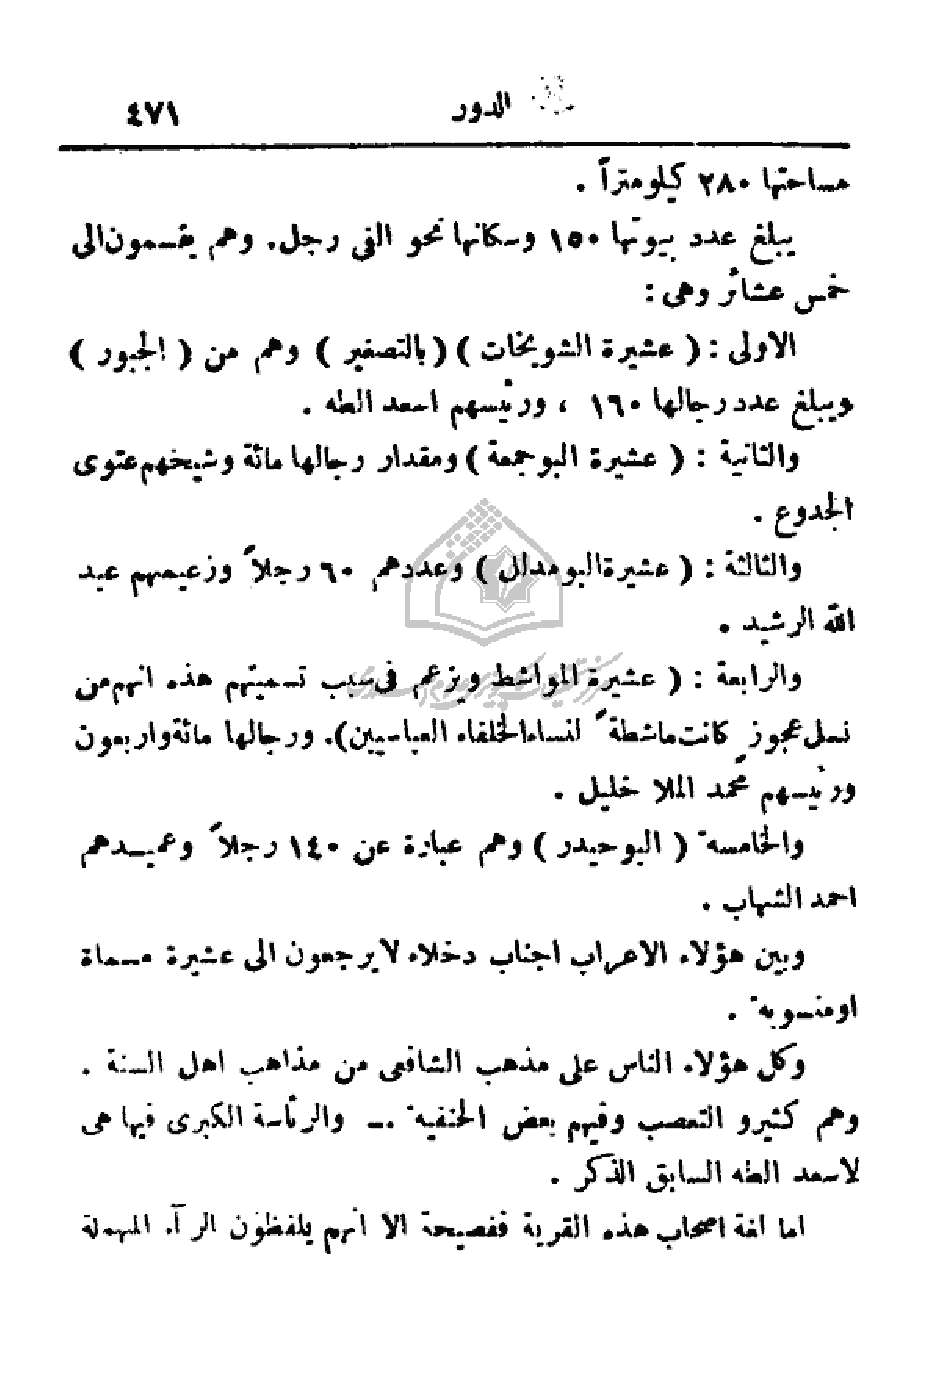 الدور ٤٧١
مساحتها ٢٨٠ كيلومتراً .
يبلغ عدد بيوتها ١٥٠ وسكانها نحو الفي رجل. وهم يقسمون الى
خمس عشائر وهي :
الاولى : ( عشيرة الشويخات ) ( بالتصغير ) وهم من ( الجبور )
ويبلغ عدد رجالها ١٦٠ ، ورئيسهم اسعد الطه .
والثانية : ( عشيرة البوجمعة ) ومقدار رجالها مائة وشيخهم عتوى
الجدوع .
والثالثة : ( عشيرة البومدلل ) وعددهم ٦٠ رجلاً وزعيمهم عبد
الله الرشيد .
والرابعة : ( عشيرة المواشط ويزعم في سبب تسميتهم هذه انهم من
نسل عجوزٍ كانت ماشطةً لنساء الخلفاء العباسيين). ورجالها مائة واربعون
ورئيسهم محمد الملا خليل .
والخامسة ( البوحيدر ) وهم عبارة عن ١٤٠ رجلاً وعميدهم
احمد الشهاب .
وبين هؤلاء الاعراب اجناب دخلاء لا يرجعون الى عشيرة مسماة
او منسوبة .
وكل هؤلاء الناس على مذهب الشافعي من مذاهب اهل السنة .
وهم كثيرو التعصب وفيهم بعض الحنفية .ــ والرئاسة الكبرى فيها هى
لاسعد الطه السابق الذكر .
اما لغة اصحاب هذه القرية ففصيحة الا انهم يلفظون الرآء المهملة